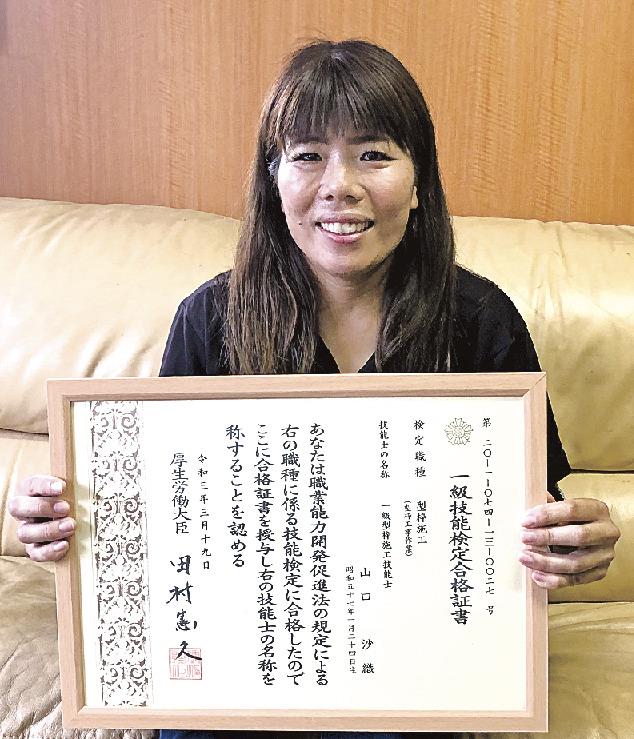 第 二〇-一-〇七四-一三-〇〇二七 号
一級技能検定合格証書
検定職種 型枠施工
(型枠工事作業)
技能士の名称 一級型枠施工技能士
山口 沙織
昭和五十七年一月二十四日生
あなたは職業能力開発促進法の規定による
右の職種に係る技能検定に合格したので
ここに合格証書を授与し右の技能士の名称を
称することを認める
令和三年三月十九日
厚生労働大臣 田村憲久